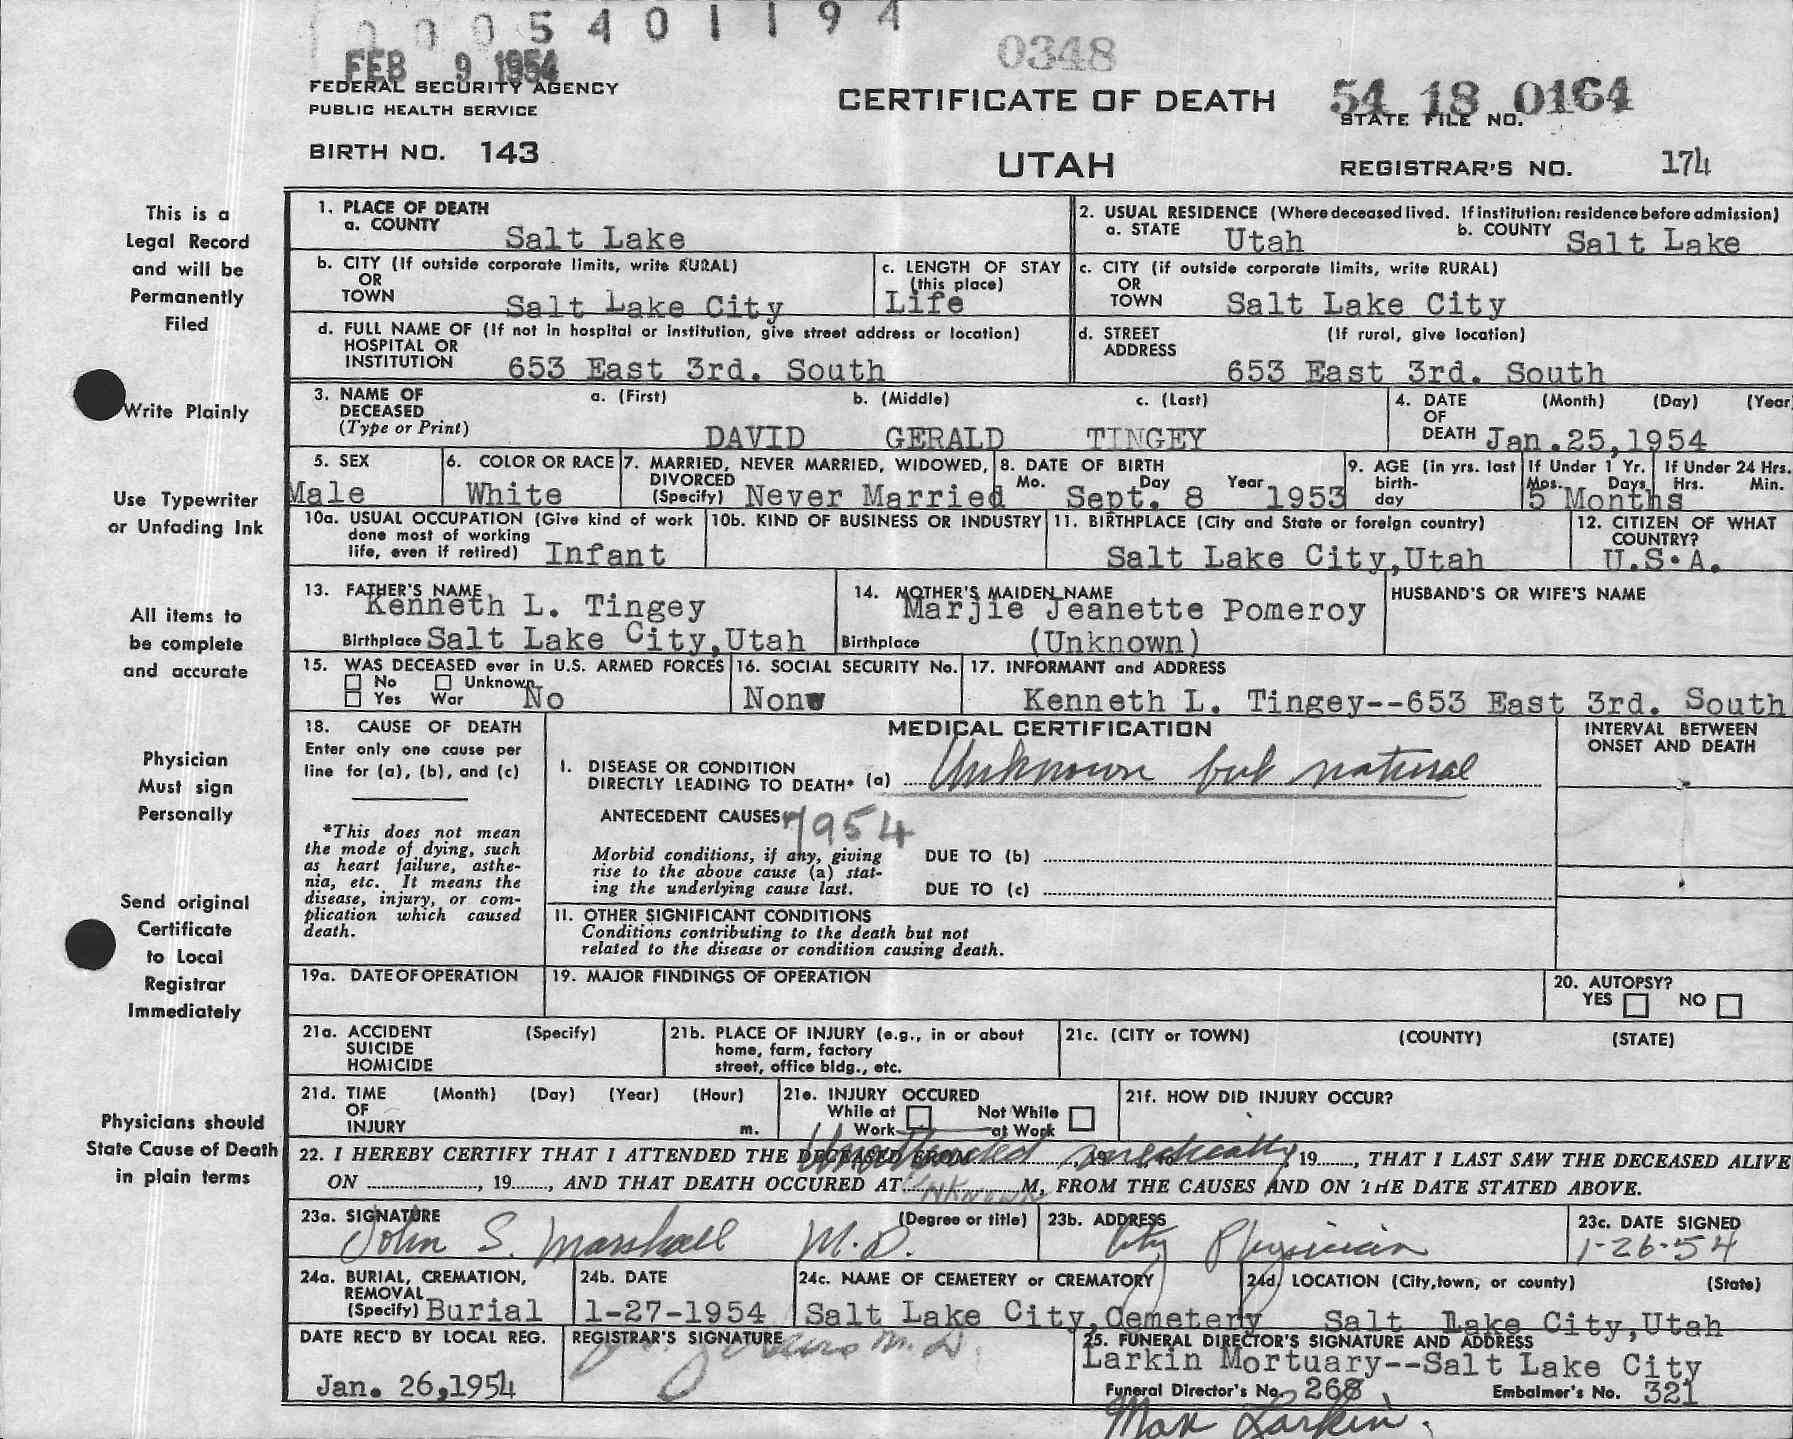 0005401194
FEB 9 1954
0348
FEDERAL SECURITY AGENCY
PUBLIC HEALTH SERVICE
CERTIFICATE OF DEATH
54 18 0164
STATE FILE NO.
BIRTH NO. 143
UTAH
REGISTRAR'S NO. 174
This is a
Legal Record
and will be
Permanently
Filed
Write Plainly
Use Typewriter
or Unfading Ink
All items to
be complete
and accurate
Physician
Must sign
Personally
Send original
Certificate
to Local
Registrar
Immediately
Physicians should
State Cause of Death
in plain terms
1. PLACE OF DEATH
a. COUNTY Salt Lake
2. USUAL RESIDENCE (Where deceased lived. If institution: residence before admission)
a. STATE Utah b. COUNTY Salt Lake
b. CITY (If outside corporate limits, write RURAL)
OR
TOWN Salt Lake City
c. LENGTH OF STAY
(this place)
Life
c. CITY (if outside corporate limits, write RURAL)
OR
TOWN Salt Lake City
d. FULL NAME OF (If not in hospital or institution, give street address or location)
HOSPITAL OR
INSTITUTION 653 East 3rd. South
d. STREET (If rural, give location)
ADDRESS
653 East 3rd. South
3. NAME OF a. (First) b. (Middle) c. (Last)
DECEASED
(Type or Print) DAVID GERALD TINGEY
4. DATE (Month) (Day) (Year)
OF
DEATH Jan.25,1954
5. SEX
Male
6. COLOR OR RACE
White
7. MARRIED, NEVER MARRIED, WIDOWED,
DIVORCED
(Specify) Never Married
8. DATE OF BIRTH
Mo. Day Year
Sept. 8 1953
9. AGE (in yrs. last
birth-
day
If Under 1 Yr.
Mos. Days
5 Months
If Under 24 Hrs.
Hrs. Min.
10a. USUAL OCCUPATION (Give kind of work
done most of working
life, even if retired) Infant
10b. KIND OF BUSINESS OR INDUSTRY
11. BIRTHPLACE (City and State or foreign country)
Salt Lake City,Utah
12. CITIZEN OF WHAT
COUNTRY?
U.S.A.
13. FATHER'S NAME
Kenneth L. Tingey
Birthplace Salt Lake City,Utah
14. MOTHER'S MAIDEN NAME
Marjie Jeanette Pomeroy
Birthplace (Unknown)
HUSBAND'S OR WIFE'S NAME
15. WAS DECEASED ever in U.S. ARMED FORCES
No Unknown
Yes War No
16. SOCIAL SECURITY No.
None
17. INFORMANT and ADDRESS
Kenneth L. Tingey--653 East 3rd. South
18. CAUSE OF DEATH
Enter only one cause per
line for (a), (b), and (c)
*This does not mean
the mode of dying, such
as heart failure, asthe-
nia, etc. It means the
disease, injury, or com-
plication which caused
death.
MEDICAL CERTIFICATION
INTERVAL BETWEEN
ONSET AND DEATH
I. DISEASE OR CONDITION
DIRECTLY LEADING TO DEATH* (a) Unknown but natural
ANTECEDENT CAUSES
7954
Morbid conditions, if any, giving
rise to the above cause (a) stat-
ing the underlying cause last.
DUE TO (b)
DUE TO (c)
II. OTHER SIGNIFICANT CONDITIONS
Conditions contributing to the death but not
related to the disease or condition causing death.
19a. DATE OF OPERATION
19. MAJOR FINDINGS OF OPERATION
20. AUTOPSY?
YES NO
21a. ACCIDENT (Specify)
SUICIDE
HOMICIDE
21b. PLACE OF INJURY (e.g., in or about
home, farm, factory
street, office bldg., etc.
21c. (CITY or TOWN) (COUNTY) (STATE)
21d. TIME (Month) (Day) (Year) (Hour)
OF
INJURY m.
21e. INJURY OCCURED
While at Not While
Work at Work
21f. HOW DID INJURY OCCUR?
22. I HEREBY CERTIFY THAT I ATTENDED THE DECEASED FROM Unattended medically, 19, to, 19, THAT I LAST SAW THE DECEASED ALIVE
ON, 19, AND THAT DEATH OCCURED AT Unknown M, FROM THE CAUSES AND ON THE DATE STATED ABOVE.
23a. SIGNATURE (Degree or title)
John S. Marshall M.D.
23b. ADDRESS
City Physician
23c. DATE SIGNED
1-26-54
24a. BURIAL, CREMATION,
REMOVAL
(Specify) Burial
24b. DATE
1-27-1954
24c. NAME OF CEMETERY or CREMATORY
Salt Lake City,Cemetery
24d. LOCATION (City,town, or county) (State)
Salt Lake City,Utah
DATE REC'D BY LOCAL REG.
Jan. 26,1954
REGISTRAR'S SIGNATURE
M.D.
25. FUNERAL DIRECTOR'S SIGNATURE AND ADDRESS
Larkin Mortuary--Salt Lake City
Funeral Director's No. 268 Embalmer's No. 321
Max Larkin.